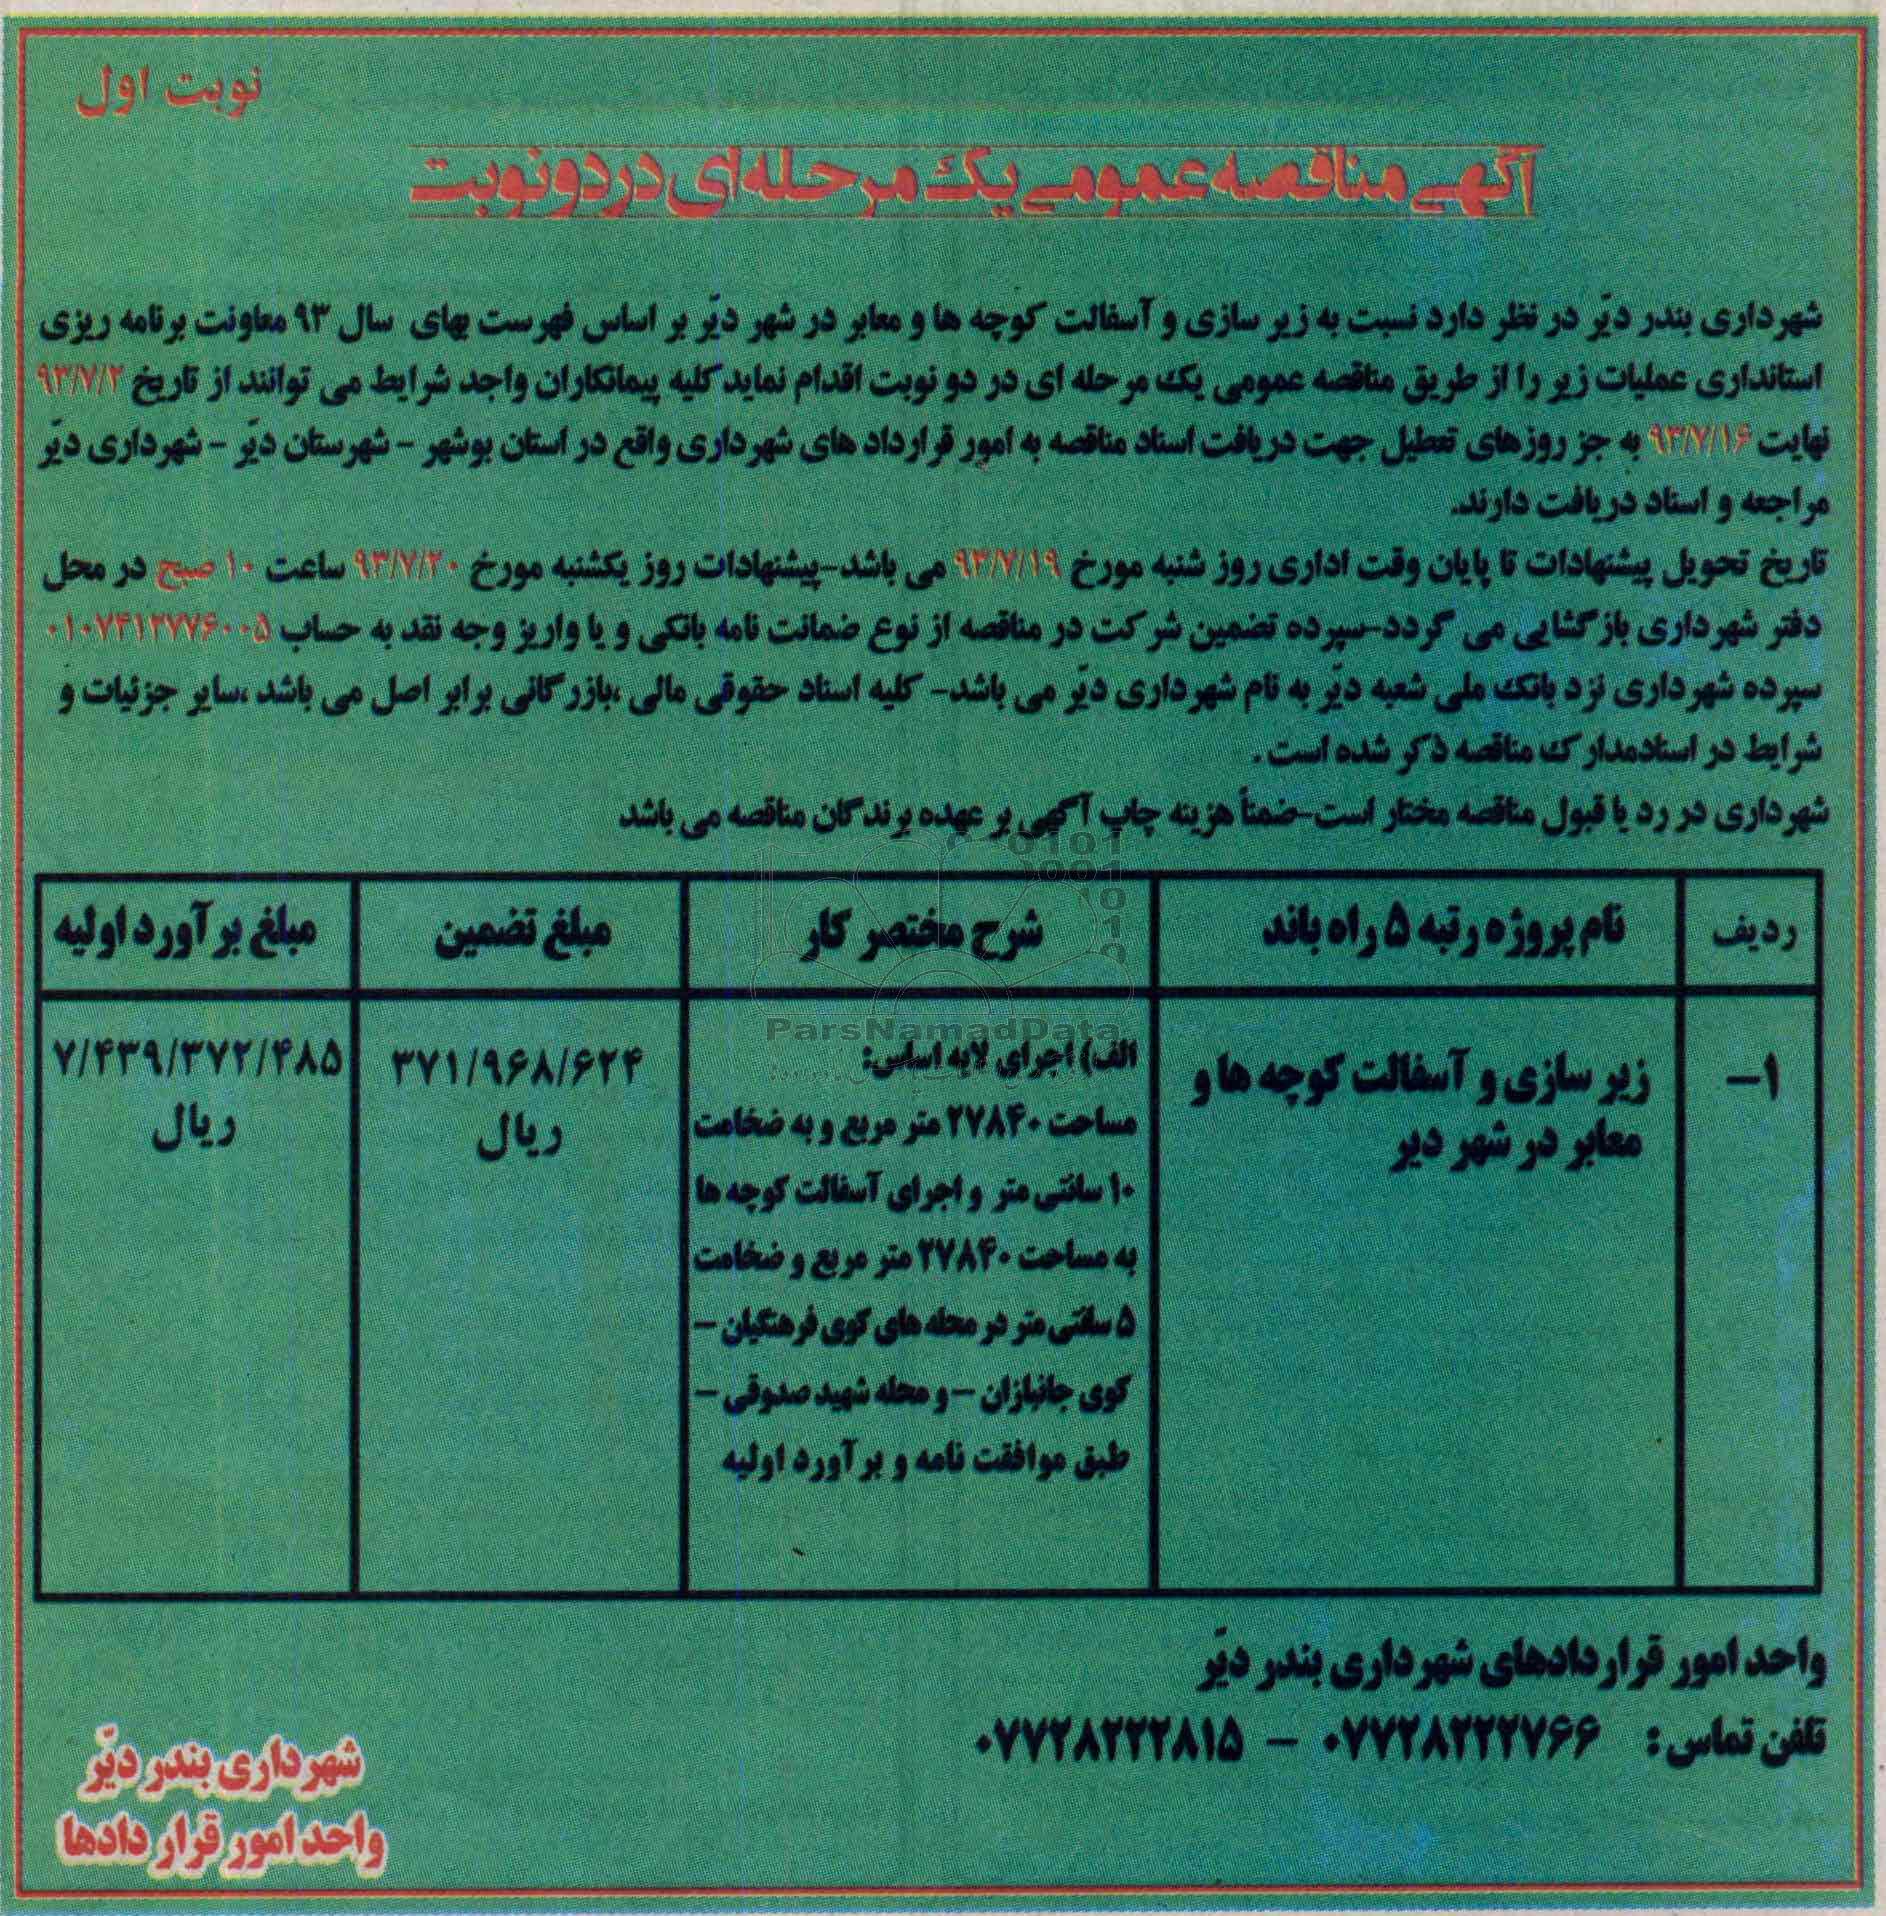 نوبت اول
آگهی مناقصه عمومی یک مرحله ای در دو نوبت
شهرداری بندر دیّر در نظر دارد نسبت به زیر سازی و آسفالت کوچه ها و معابر در شهر دیّر بر اساس فهرست بهای سال ۹۳ معاونت برنامه ریزی
استانداری عملیات زیر را از طریق مناقصه عمومی یک مرحله ای در دو نوبت اقدام نماید کلیه پیمانکاران واجد شرایط می توانند از تاریخ ۹۳/۷/۲
نهایت ۹۳/۷/۱۶ به جز روزهای تعطیل جهت دریافت اسناد مناقصه به امور قرارداد های شهرداری واقع در استان بوشهر - شهرستان دیّر - شهرداری دیّر
مراجعه و اسناد دریافت دارند.
تاریخ تحویل پیشنهادات تا پایان وقت اداری روز شنبه مورخ ۹۳/۷/۱۹ می باشد-پیشنهادات روز یکشنبه مورخ ۹۳/۷/۲۰ ساعت ۱۰ صبح در محل
دفتر شهرداری بازگشایی می گردد-سپرده تضمین شرکت در مناقصه از نوع ضمانت نامه بانکی و یا واریز وجه نقد به حساب ۰۱۰۷۴۱۲۷۷۶۰۰۵
سپرده شهرداری نزد بانک ملی شعبه دیّر به نام شهرداری دیّر می باشد- کلیه اسناد حقوقی مالی ،بازرگانی برابر اصل می باشد ،سایر جزئیات و
شرایط در اسنادمدارک مناقصه ذکر شده است .
شهرداری در رد یا قبول مناقصه مختار است-ضمناً هزینه چاپ آگهی بر عهده برندگان مناقصه می باشد
ردیف
نام پروژه رتبه ۵ راه باند
شرح مختصر کار
مبلغ تضمین
مبلغ برآورد اولیه
۱-
زیر سازی و آسفالت کوچه ها و
معابر در شهر دیر
الف) اجرای لایه اساس:
مساحت ۲۷۸۴۰ متر مربع و به ضخامت
۱۰ سانتی متر و اجرای آسفالت کوچه ها
به مساحت ۲۷۸۴۰ متر مربع و ضخامت
۵ سانتی متر در محله های کوی فرهنگیان -
کوی جانبازان - و محله شهید صدوقی -
طبق موافقت نامه و برآورد اولیه
۳۷۱/۹۶۸/۶۲۴
ریال
۷/۴۳۹/۳۷۲/۴۸۵
ریال
ParsNamadData
واحد امور قراردادهای شهرداری بندر دیّر
تلفن تماس : ۰۷۷۲۸۲۲۲۷۶۶ - ۰۷۷۲۸۲۲۲۸۱۵
شهرداری بندر دیّر
واحد امور قرار دادها